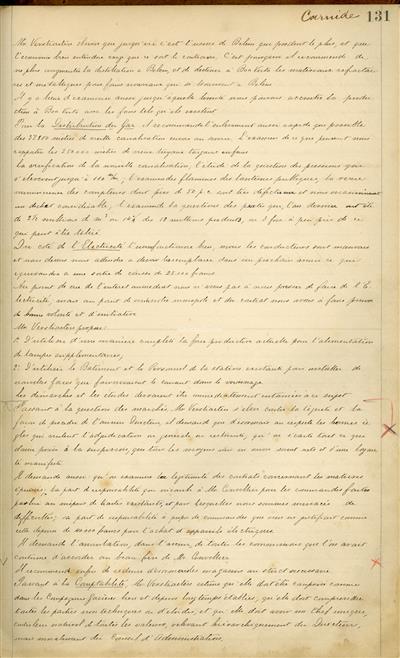 Cornide 131
Mr Verstraeten observe que jusqu'ici c'est l'usine de Belem qui produit le plus, et que
l'économie bien entendue exige que ce soit le contraire. C'est pourquoi il recommande de
ne plus augmenter la distillation à Belem, et de destiner à Boa Vista les matériaux réfractai-
res et métalliques pour fours nouveaux qui se trouvent à Belem
Il y a lieu d'examiner aussi jusqu'à quelle limite nous pouvons accroître la produc-
tion à Boa Vista avec les fours tels qu'ils existent
Pour la Distribution du Gaz il recommande l'enlèvement aussi rapide que possible
des mètres de vieille canalisation encore au service. L'examen de ce que peuvent nous
rapporter les mètres de vieux tuyaux laissés enfouis
La vérification de la nouvelle canalisation, l'étude de la question des pressions qui
s'élèvent jusqu'à l'examen des flammes des lanternes publiques, la revue
minutieuse des compteurs dont près de 50 p.c. sont très défectueux et nous occasionnent
un déchet considérable, l'examen de la question des pertes qui, l'an dernier ont été
de 2½ millions de m³ ou des millions perdus, ou 3 fois à peu près de ce
qui peut être toléré.
Du côté de l'Electricité l'usine fonctionne bien, mais les conducteurs sont mauvais
et nous devons nous attendre à devoir les remplacer dans un prochain avenir ce que
équivaudra à une sortie de caisse de francs
Au point de vue de l'intérêt immédiat nous n'avons pas à nous presser de faire de l'É-
lectricité, mais au point de vue du monopole et du contrat nous avons à faire preuve
de bonne volonté et d'initiative
Mr Verstraeten propose:
1º D'utiliser d'une manière complète la force productive actuelle pour l'alimentation
de lampes supplémentaires,
2º D'utiliser le Bâtiment et le Personnel de la station existante pour installer de
nouvelles forces qui fourniraient le courant dans le voisinage
Les démarches et les études devraient être immédiatement entamées à ce sujet
Passant à la question des marchés, Mr Verstraeten s'élève contre la légèreté et la
façon de procéder de l'ancien Directeur, et demande que désormais on respecte les bonnes rè-
gles qui veulent l'adjudication ou générale ou restreinte, qu'on s'écarte tout ce qui
donne prise à la suspicion, que tous les moyens mis en œuvre soient nets et d'une loyau-
té manifeste
Il demande aussi qu'on examine la légitimité des contrats concernant les matières
épurantes, la part de responsabilité qui incombe à Mr pour les commandes faites
au mépris de toutes restrictions, et par lesquelles nous sommes menacés de
difficultés, sa part de responsabilité à propos de commandes que rien ne justifiait comme
celle dernière de francs pour l'achat d'appareils électriques
Il demande l'annulation, dans l'avenir, de toutes les commissions que l'on avait
coutume d'accorder au beau-frère de Mr
Il recommande enfin de réduire d'énormes magasins au strict nécessaire
Passant à la Comptabilité, Mr Verstraeten estime qu'elle doit être comprise comme
dans les Compagnies Gazières bien et depuis longtemps établies, qu'elle doit comprendre
toutes les parties non techniques ou d'études, et qu'elle doit avoir un chef unique,
contrôleur naturel de toutes les valeurs, relevant hiérarchiquement du Directeur,
mais moralement du Conseil d'Administration